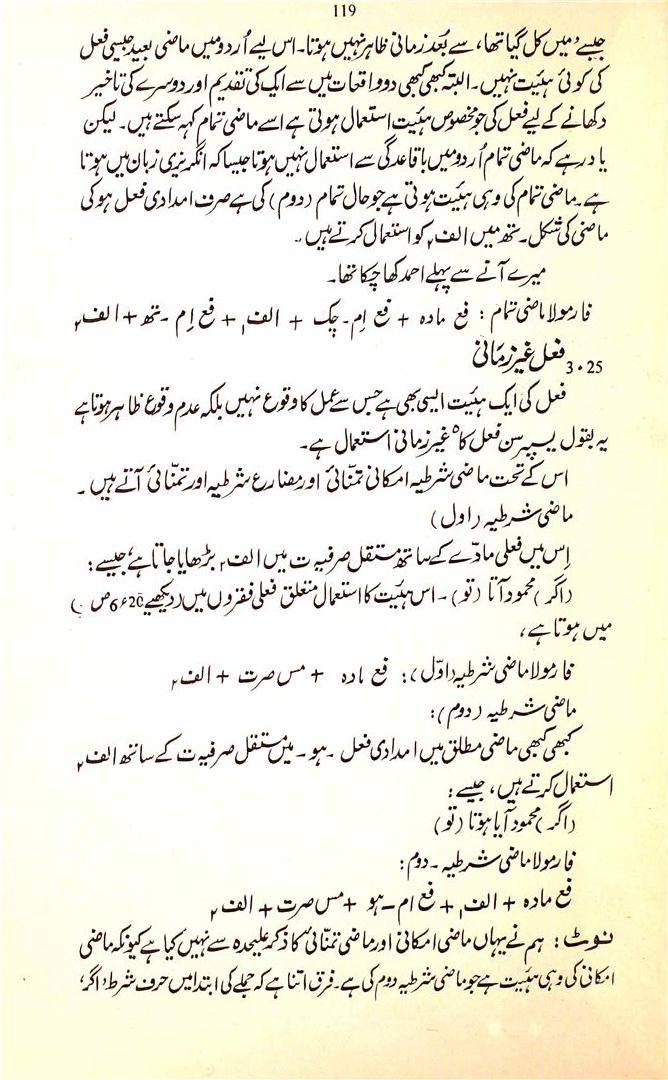 119
جیسے ’میں کل گیا تھا، سے بُعد زمانی ظاہر نہیں ہوتا۔ اس لیے اُردو میں ماضی بعید جیسی فعل
کی کوئی ہئیت نہیں۔ البتہ کبھی کبھی دو واقعات میں سے ایک کی تقدیم اور دوسرے کی تاخیر
دکھانے کے لیے فعل کی جو مخصوص ہئیت استعمال ہوتی ہے اسے ماضی تمام کہہ سکتے ہیں۔ لیکن
یاد رہے کہ ماضی تمام اُردو میں باقاعدگی سے استعمال نہیں ہوتا جیسا کہ انگریزی زبان میں ہوتا
ہے۔ ماضی تمام کی وہی ہئیت ہوتی ہے جو حال تمام (دوم) کی ہے صرف امدادی فعل ہو کی
ماضی کی شکل۔ تھ میں الف۲ کو استعمال کرتے ہیں۔
میرے آنے سے پہلے احمد کھا چکا تھا۔
فارمولا ماضی تمام : فع مادہ + فع اِم۔ چک + الف۱ + فع اِم ۔ تھ + الف۲
3.25 فعل غیر زمانی
فعل کی ایک ہئیت ایسی بھی ہے جس سے عمل کا وقوع نہیں بلکہ عدم وقوع ظاہر ہوتا ہے
یہ بقول یسپرسن فعل کا ۵ غیر زمانی استعمال ہے۔
اس کے تحت ماضی شرطیہ امکانی تمنّائی اور مضارع شرطیہ اور تمنّائی آتے ہیں۔
ماضی شرطیہ (اول)
اِس میں فعلی مادّے کے ساتھ مستقل صرفیہ ت میں الف۲ بڑھایا جاتا ہے، جیسے :
(اگر) محمود آتا (تو)۔ اس ہئیت کا استعمال متعلق فعلی فقروں میں (دیکھیے 6.20 ص )
میں ہوتا ہے،
فارمولا ماضی شرطیہ (اوّل): فع مادہ + مس صرت + الف۲
ماضی شرطیہ (دوم):
کبھی کبھی ماضی مطلق میں امدادی فعل ۔ ہو ۔ میں مستقل صرفیہ ت کے ساتھ الف۲
استعمال کرتے ہیں، جیسے :
(اگر) محمود آیا ہوتا (تو)
فارمولا ماضی شرطیہ ۔ دوم :
فع مادہ + الف۱ + فع ام ۔ ہو + مس صرت + الف۲
نوٹ : ہم نے یہاں ماضی امکانی اور ماضی تمنّائی کا ذکر علیحدہ سے نہیں کیا ہے کیونکہ ماضی
امکانی کی وہی ہئیت ہے جو ماضی شرطیہ دوم کی ہے۔ فرق اتنا ہے کہ جملے کی ابتدا میں حرف شرط ’اگر‘